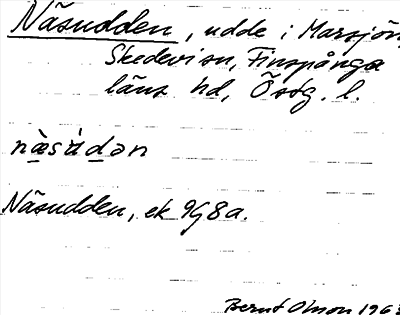 Näsudden, udde i Marsjön,
Skedevi sn, Finspånga
läns hd, Östg. l.
Näsudden, ek 9G8a.
Bernt Olsson 1963